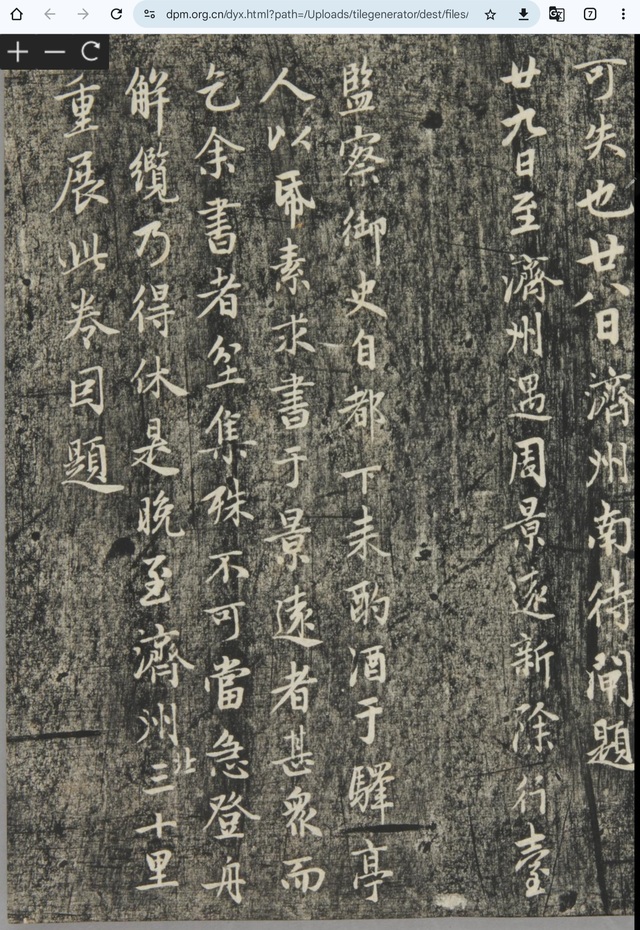 dpm.org.cn/dyx.html?path=/Uploads/tilegenerator/dest/files/
7
可失也廿八日濟州南待閘題
廿九日至濟州遇周景遠新除行臺
監察御史自都下来酌酒于驛亭
人以帋素求書于景遠者甚衆而
乞余書者坌集殊不可當急登舟
解纜乃得休是晚至濟州北三十里
重展此卷因題